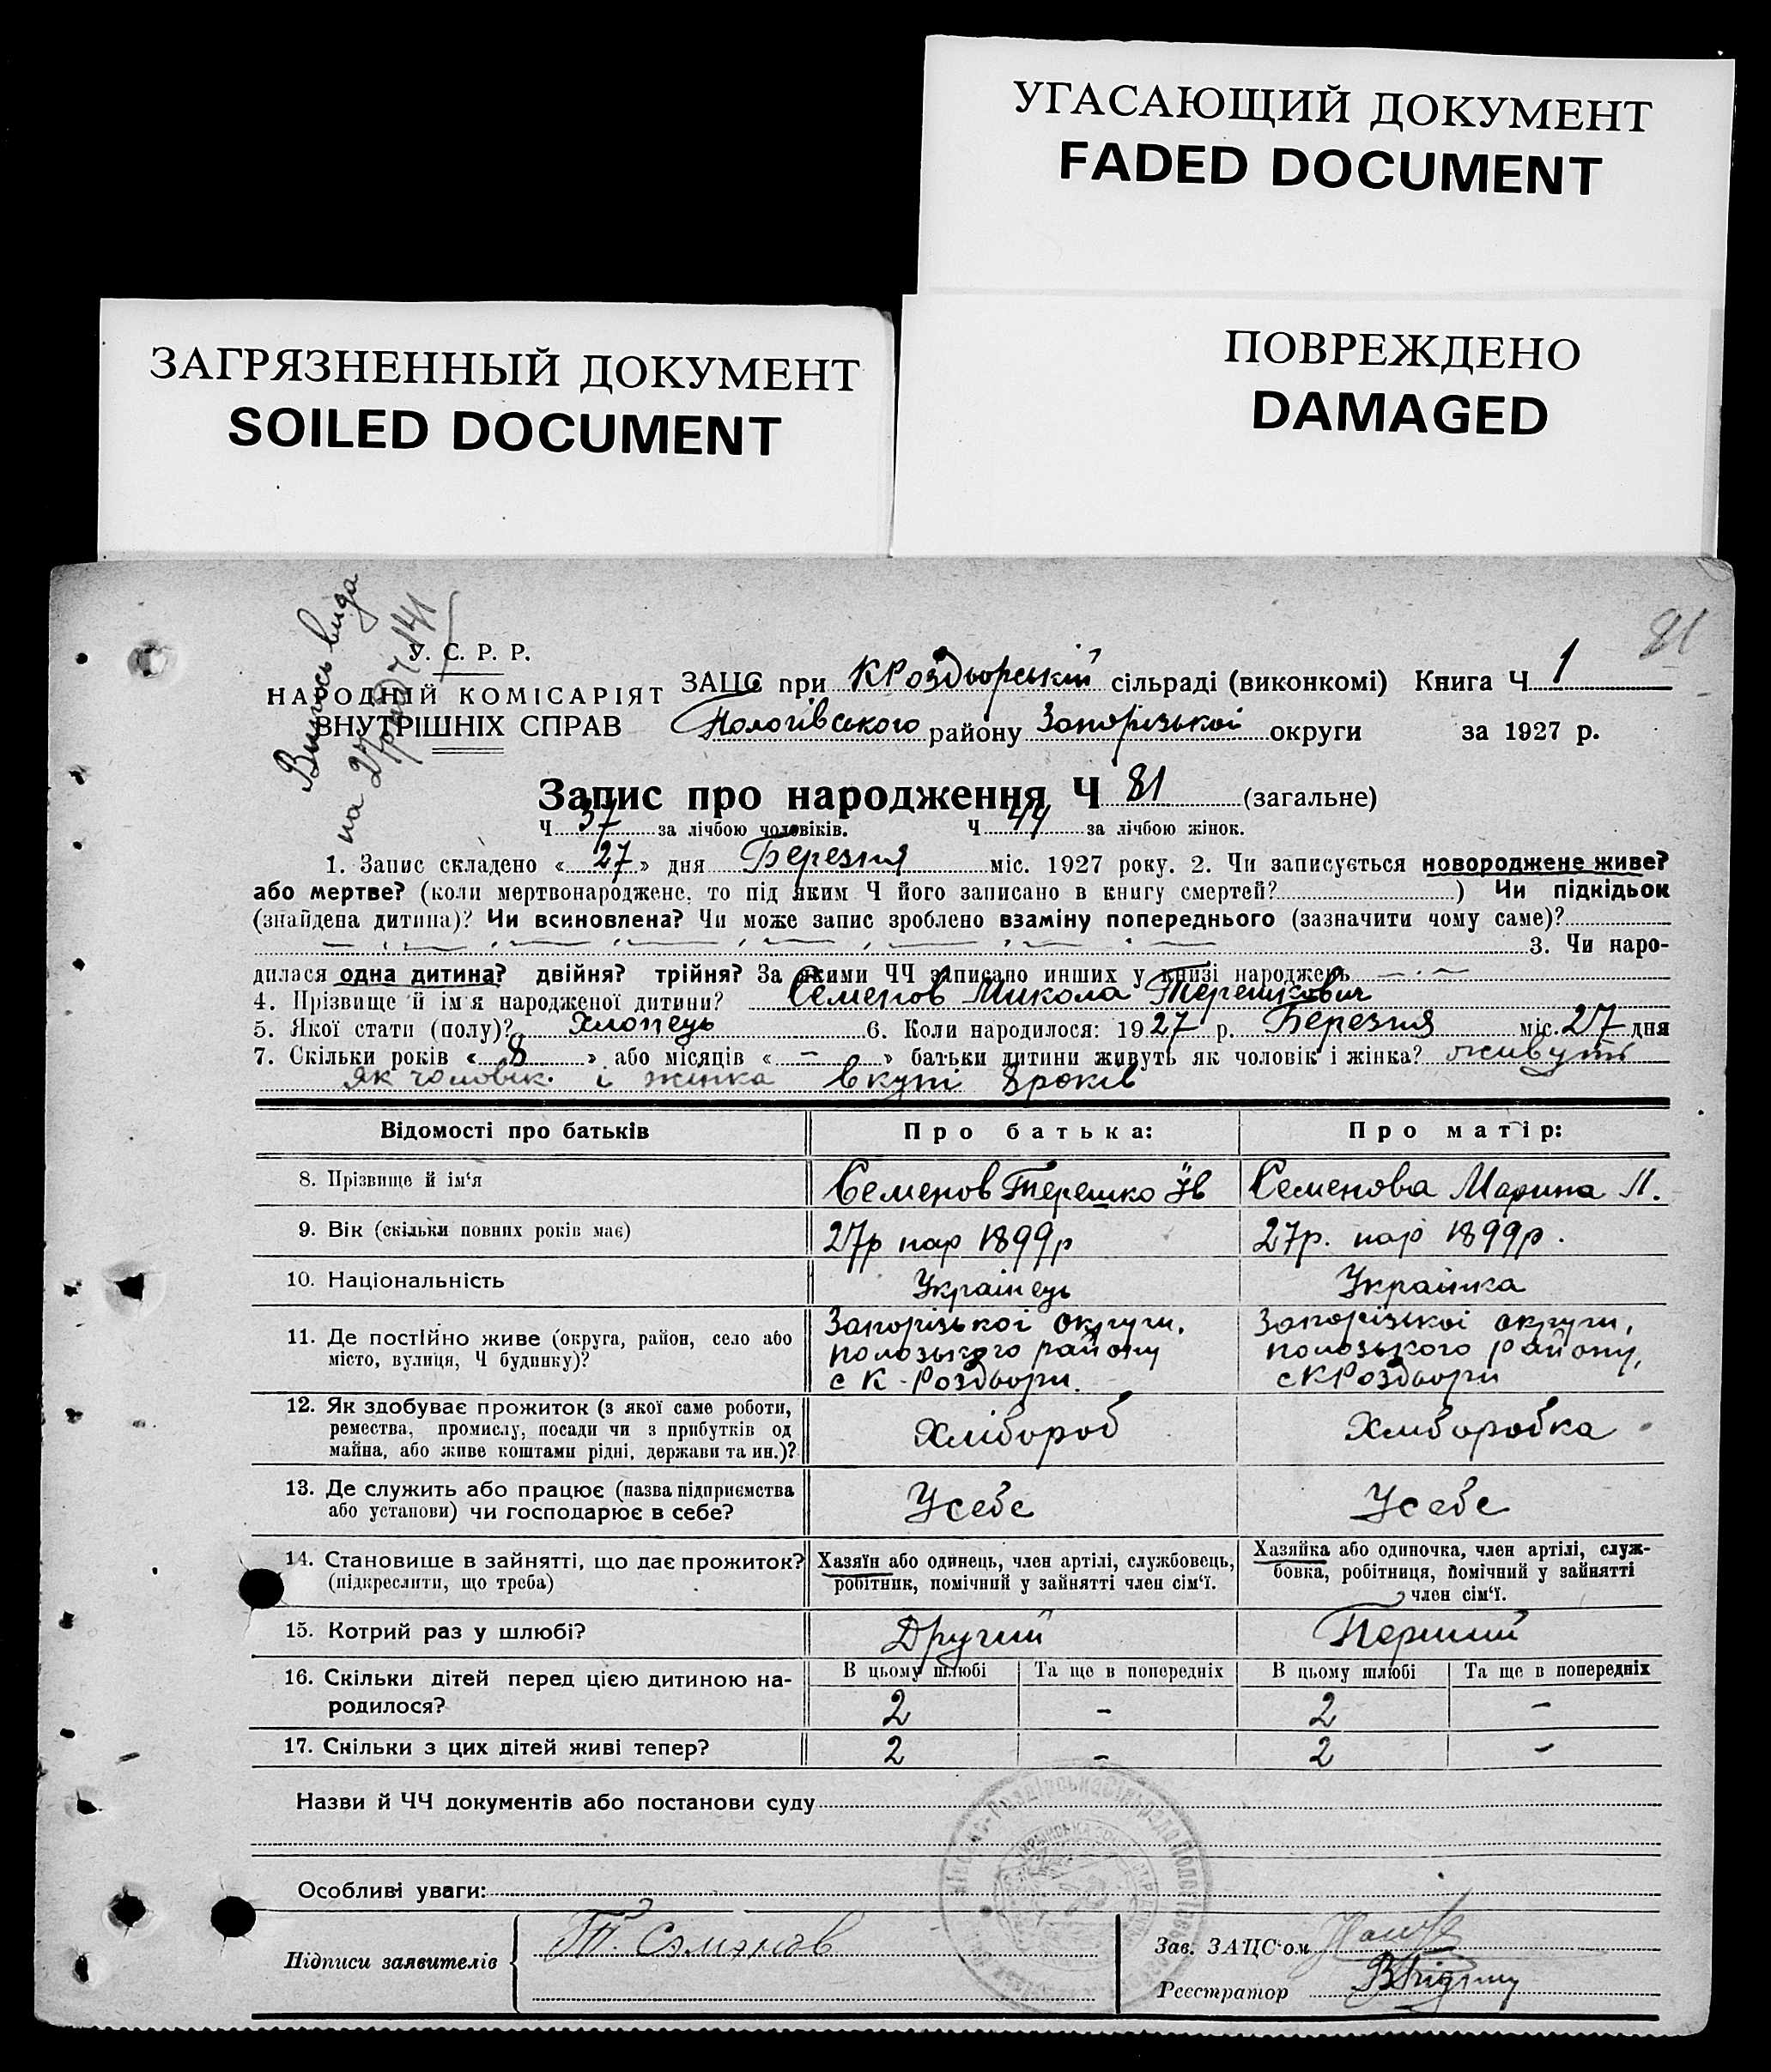 УГАСАЮЩИЙ ДОКУМЕНТ
FADED DOCUMENT
ЗАГРЯЗНЕННЫЙ ДОКУМЕНТ
SOILED DOCUMENT
ПОВРЕЖДЕНО
DAMAGED
81
У. С. Р. Р.
НАРОДНІЙ КОМІСАРІЯТ
ВНУТРІШНІХ СПРАВ
ЗАЦС при КРоздворській сільраді (виконкомі) Книга Ч 1
Пологівського району Запорізької округи за 1927 р.
Запис про народження Ч 81 (загальне)
Ч 37 за лічбою чоловіків. Ч 44 за лічбою жінок.
1. Запис складено «27» дня Березня міс. 1927 року. 2. Чи записується новороджене живе?
або мертве? (коли мертвонароджене, то під яким Ч його записано в книгу смертей? ) Чи підкідьок
(знайдена дитина)? Чи всиновлена? Чи може запис зроблено взаміну попереднього (зазначити чому саме)?
3. Чи наро-
дилася одна дитина? двійня? трійня? За якими ЧЧ записано инших у книзі народжень — · —
4. Прізвище й ім'я народженої дитини? Семенов Микола Терешкович
5. Якої стати (полу)? Хлопець 6. Коли народилося: 1927 р. Березня міс. 27 дня
7. Скільки років «8» або місяців «—» батьки дитини живуть як чоловік і жінка? живуть
як чоловік. і жінка вкупі 8 років
Відомості про батьків Про батька: Про матір:
8. Прізвище й ім'я Семенов Терешко Ів Семенова Марина П.
9. Вік (скільки повних років має) 27р нар 1899р 27р. нар 1899р.
10. Національність Українець Українка
11. Де постійно живе (округа, район, село або Запорізької округи, Запорізької округи,
місто, вулиця, Ч будинку)? полозького району полозького району,
с К-Роздори. с КРоздвори
12. Як здобуває прожиток (з якої саме роботи,
ремества, промислу, посади чи з прибутків од Хлібороб Хліборобка
майна, або живе коштами рідні, держави та ин.)?
13. Де служить або працює (назва підприємства
або установи) чи господарює в себе? Усебе Усебе
14. Становище в зайнятті, що дає прожиток? Хазяїн або одинець, член артілі, службовець, Хазяйка або одиночка, член артілі, служ-
(підкреслити, що треба) робітник, помічний у зайнятті член сім'ї. бовка, робітниця, помічний у зайнятті
член сім'ї.
15. Котрий раз у шлюбі? Другий Перший
16. Скільки дітей перед цією дитиною на- В цьому шлюбі Та ще в попередніх В цьому шлюбі Та ще в попередніх
родилося? 2 - 2 -
17. Скільки з цих дітей живі тепер? 2 - 2 -
Назви й ЧЧ документів або постанови суду
Особливі уваги:
Підписи заявителів Т. Семэнов
Зав. ЗАЦС'ом
Реєстратор